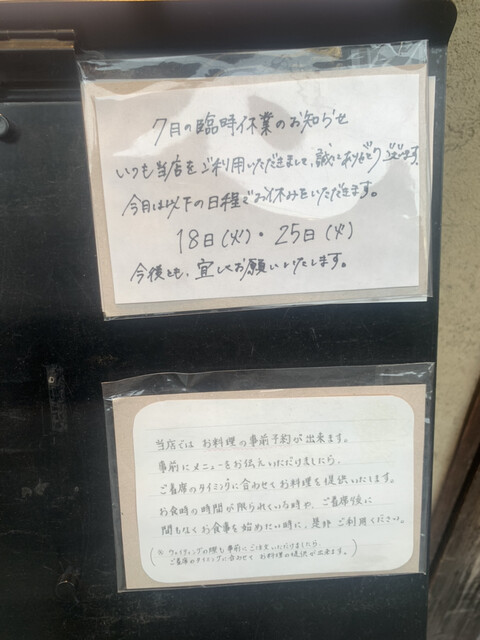 7月の臨時休業のお知らせ
いつも当店をご利用いただきまして、誠にありがとうございます。
今月は以下の日程でお休みをいただきます。
18日(火)・25日(火)
今後とも、宜しくお願いいたします。
当店では お料理の事前予約が出来ます。
事前にメニューをお伝えいただけましたら、
ご着席のタイミングに合わせてお料理を提供いたします。
お食時の時間が限られている時や、ご着席後に
間もなくお食事を始めたい時に、是非ご利用ください。
(※ ウェイティングの際も事前にご注文いただけましたら、
ご着席のタイミングに合わせて お料理の提供が出来ます。)